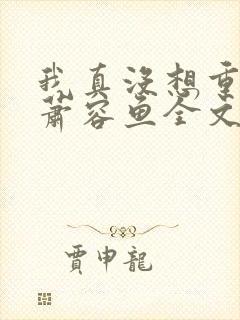 我真没想重
萧容鱼全文
贾申龙